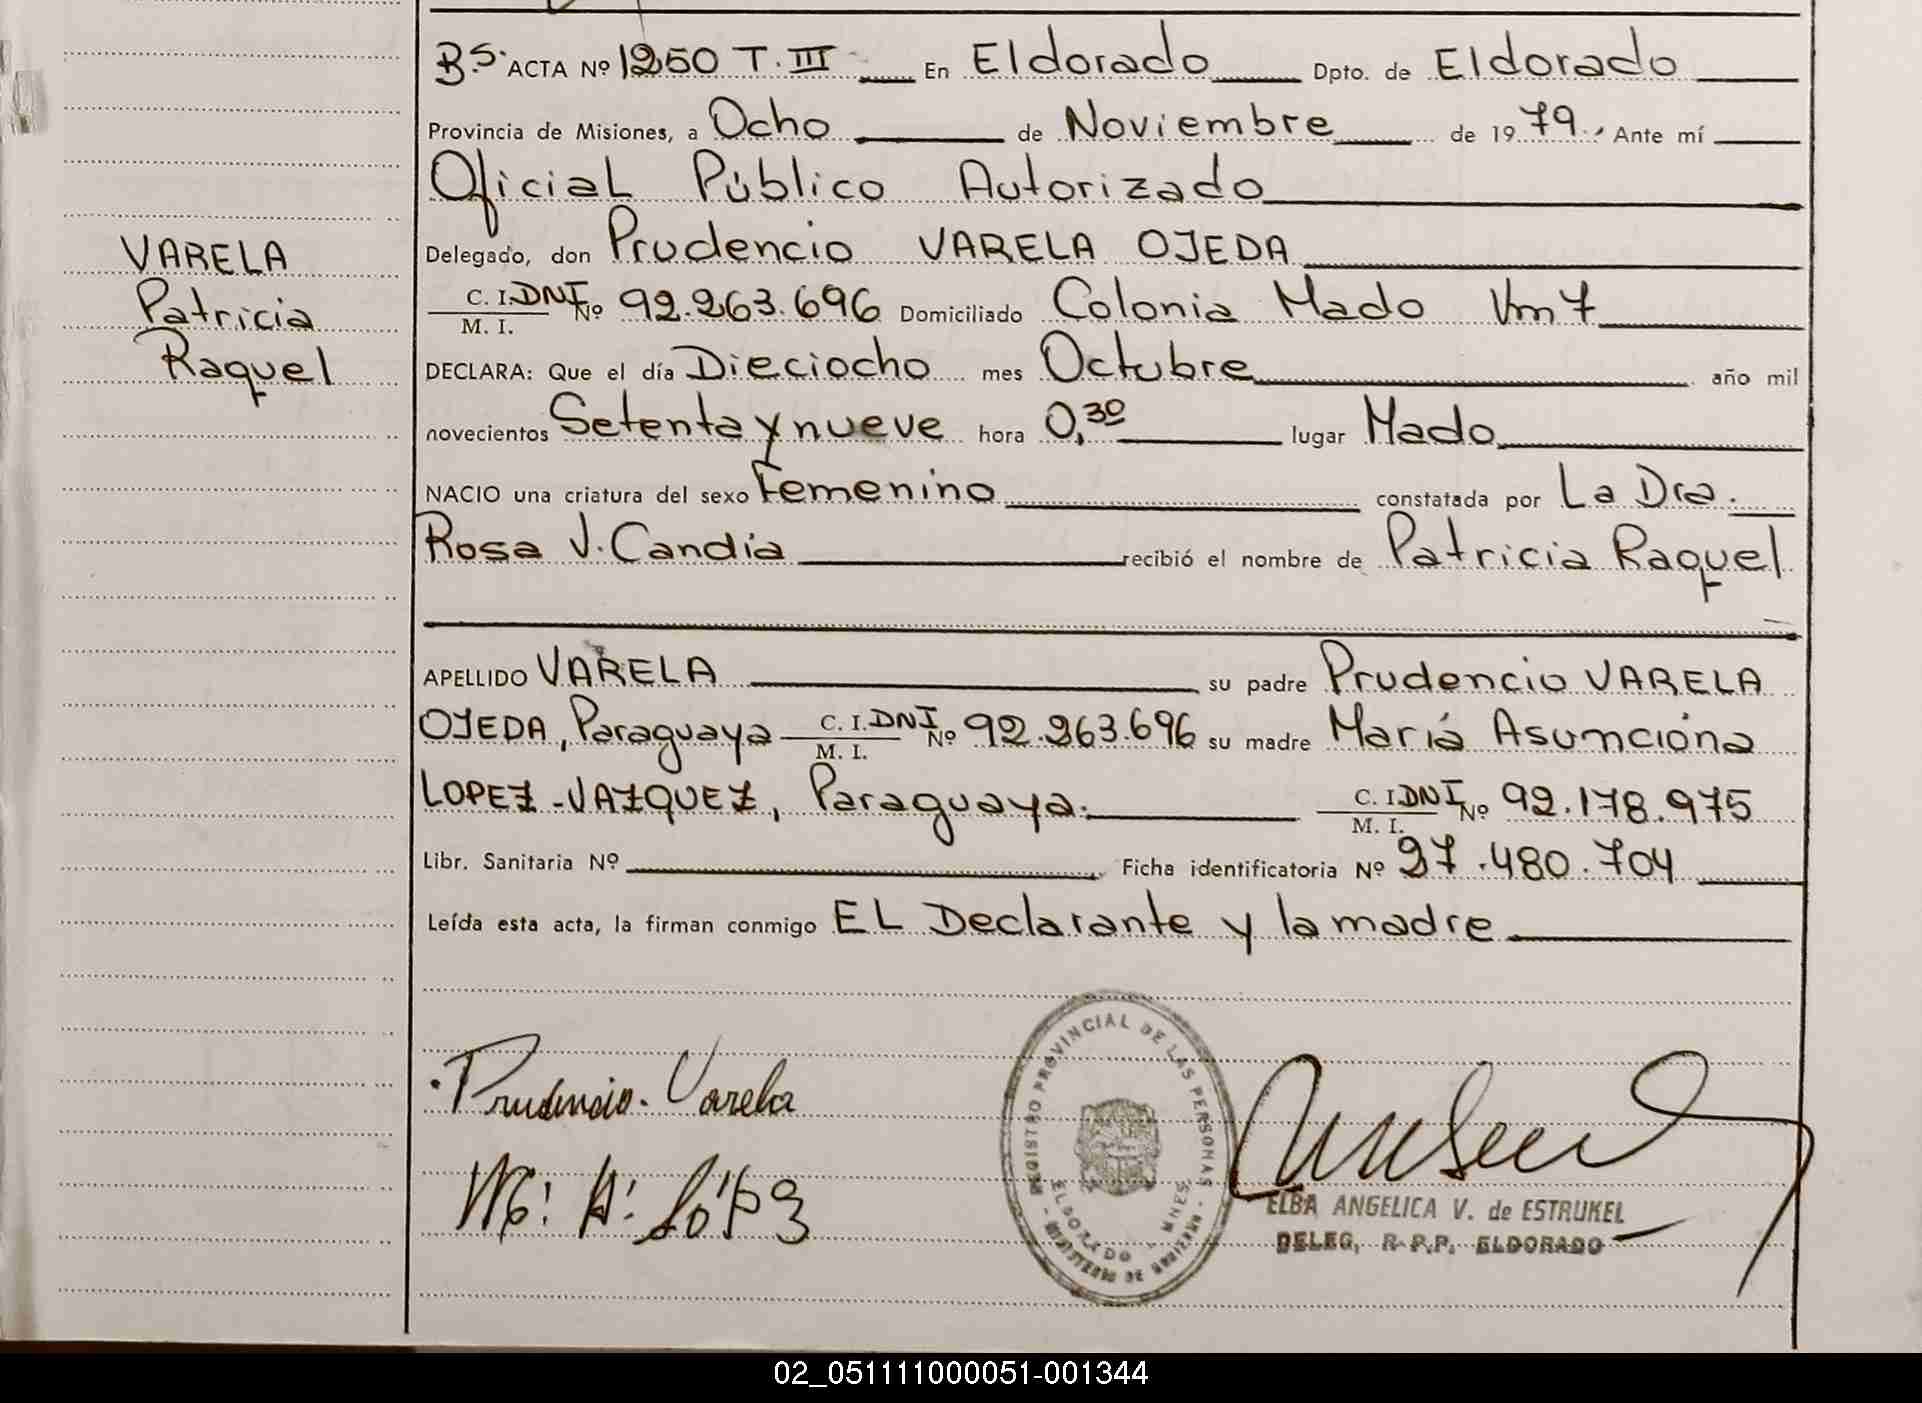 Bs. ACTA Nº 1250 T. III En Eldorado Dpto. de Eldorado
Provincia de Misiones, a Ocho de Noviembre de 1979., Ante mí
Oficial Público Autorizado
Delegado, don Prudencio VARELA OJEDA
VARELA
Patricia
Raquel
C. I. DNI Nº 92.263.696 Domiciliado Colonia Mado Km 7
M. I.
DECLARA: Que el día Dieciocho mes Octubre año mil
novecientos Setenta y nueve hora 0,30 lugar Mado
NACIO una criatura del sexo Femenino constatada por La Dra.
Rosa J. Candia recibió el nombre de Patricia Raquel
APELLIDO VARELA su padre Prudencio VARELA
OJEDA, Paraguaya C. I. DNI Nº 92.263.696 su madre María Asunción
M. I.
LOPEZ-VAZQUEZ, Paraguaya. C. I. DNI Nº 92.178.975
M. I.
Libr. Sanitaria Nº Ficha identificatoria Nº 27.480.704
Leída esta acta, la firman conmigo EL Declarante y la madre
Prudencio. Varela
REGISTRO PROVINCIAL DE LAS PERSONAS
ELDORADO - MNES.
MINISTERIO DE GOBIERNO
ELBA ANGELICA V. de ESTRUKEL
DELEG. R.P.P. ELDORADO
02_051111000051-001344